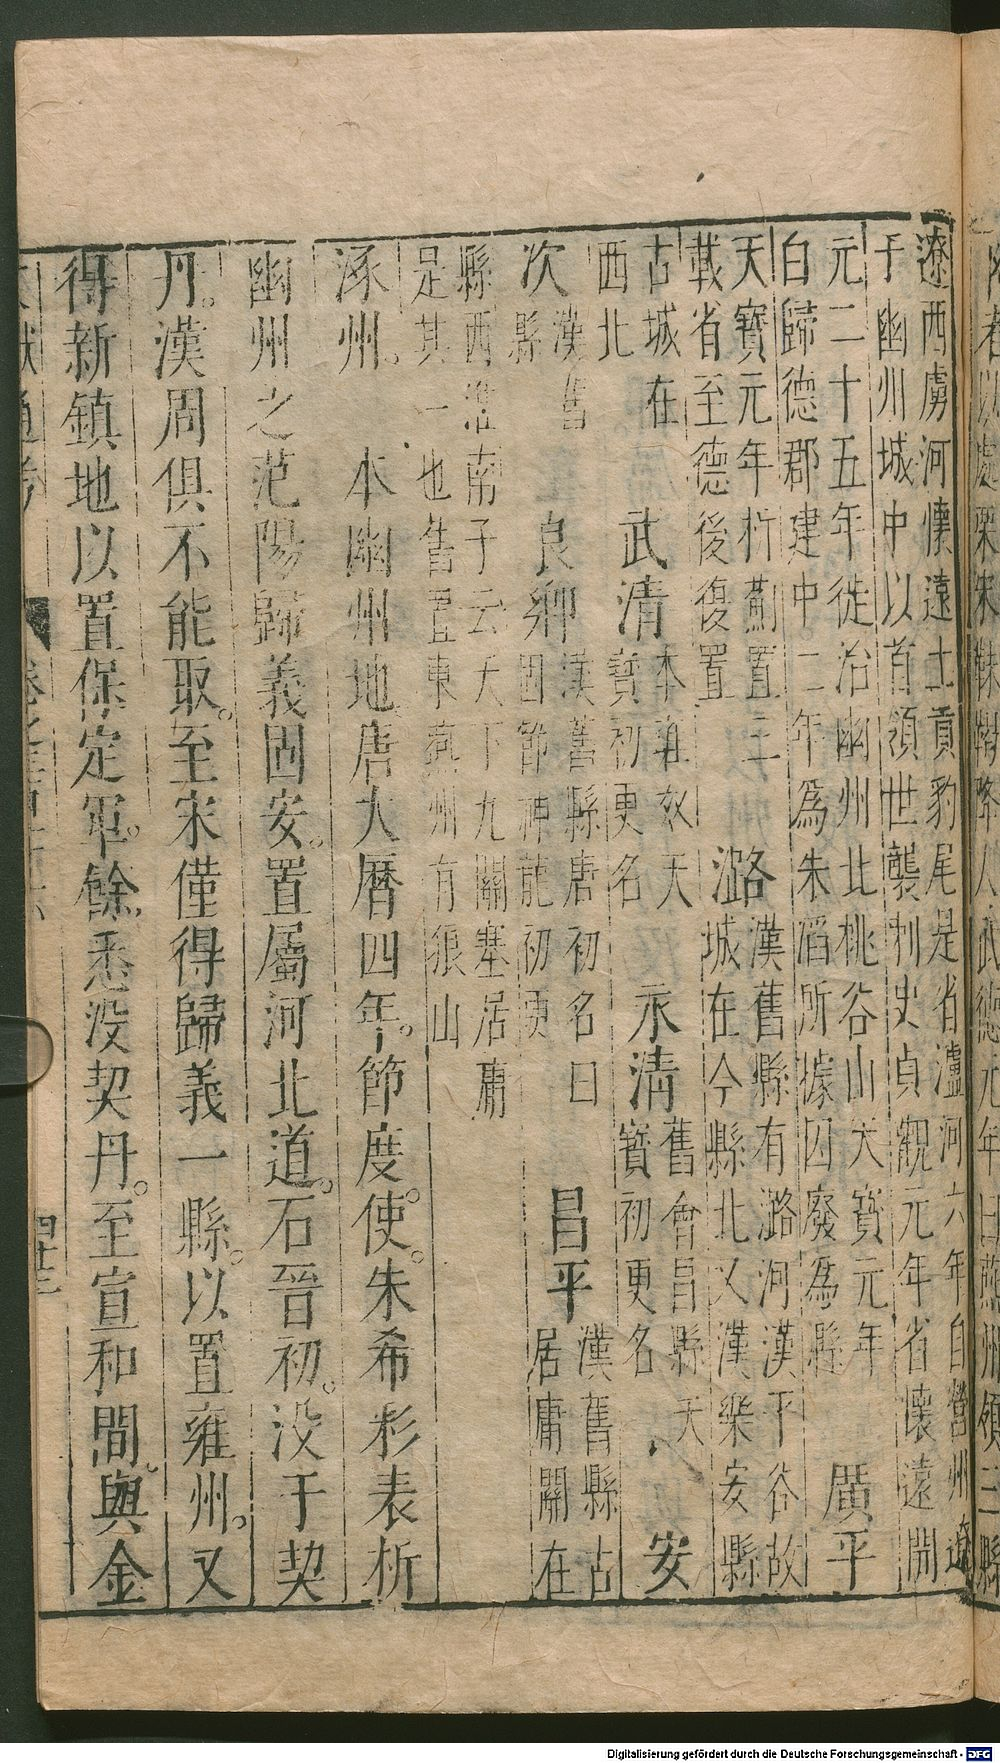 者以處栗末靺鞨降人武德元年曰燕州領三縣
遼西虜河懷遠土貢豹尾是省瀘河六年自營州遼
于幽州城中以首領世襲刺史貞觀元年省懷遠開
元二十五年徙治幽州北桃谷山天寶元年
白歸德郡建中二年爲朱滔所據因廢爲縣
廣平
天寶元年析薊置三
載省至德後復置
潞
漢舊縣有潞河漢平谷故
城在今縣北又漢樂安縣
古城在
西北
武清
本雍奴天
寶初更名
永清
舊會昌縣天
寶初更名
安
次
漢舊
縣
良鄉
漢舊縣唐初名曰
固節神龍初更
昌平
漢舊縣古
居庸關在
縣西淮南子云天下九關塞居庸
是其一也舊置東燕州有狼山
涿州。 本幽州地唐大曆四年。節度使。朱希彩表析
幽州之范陽歸義固安。置屬河北道。石晉初。没于契
丹。漢周俱不能取。至宋僅得歸義一縣。以置雍州。又
得新鎮地以置保定軍。餘悉没契丹。至宣和間。與金